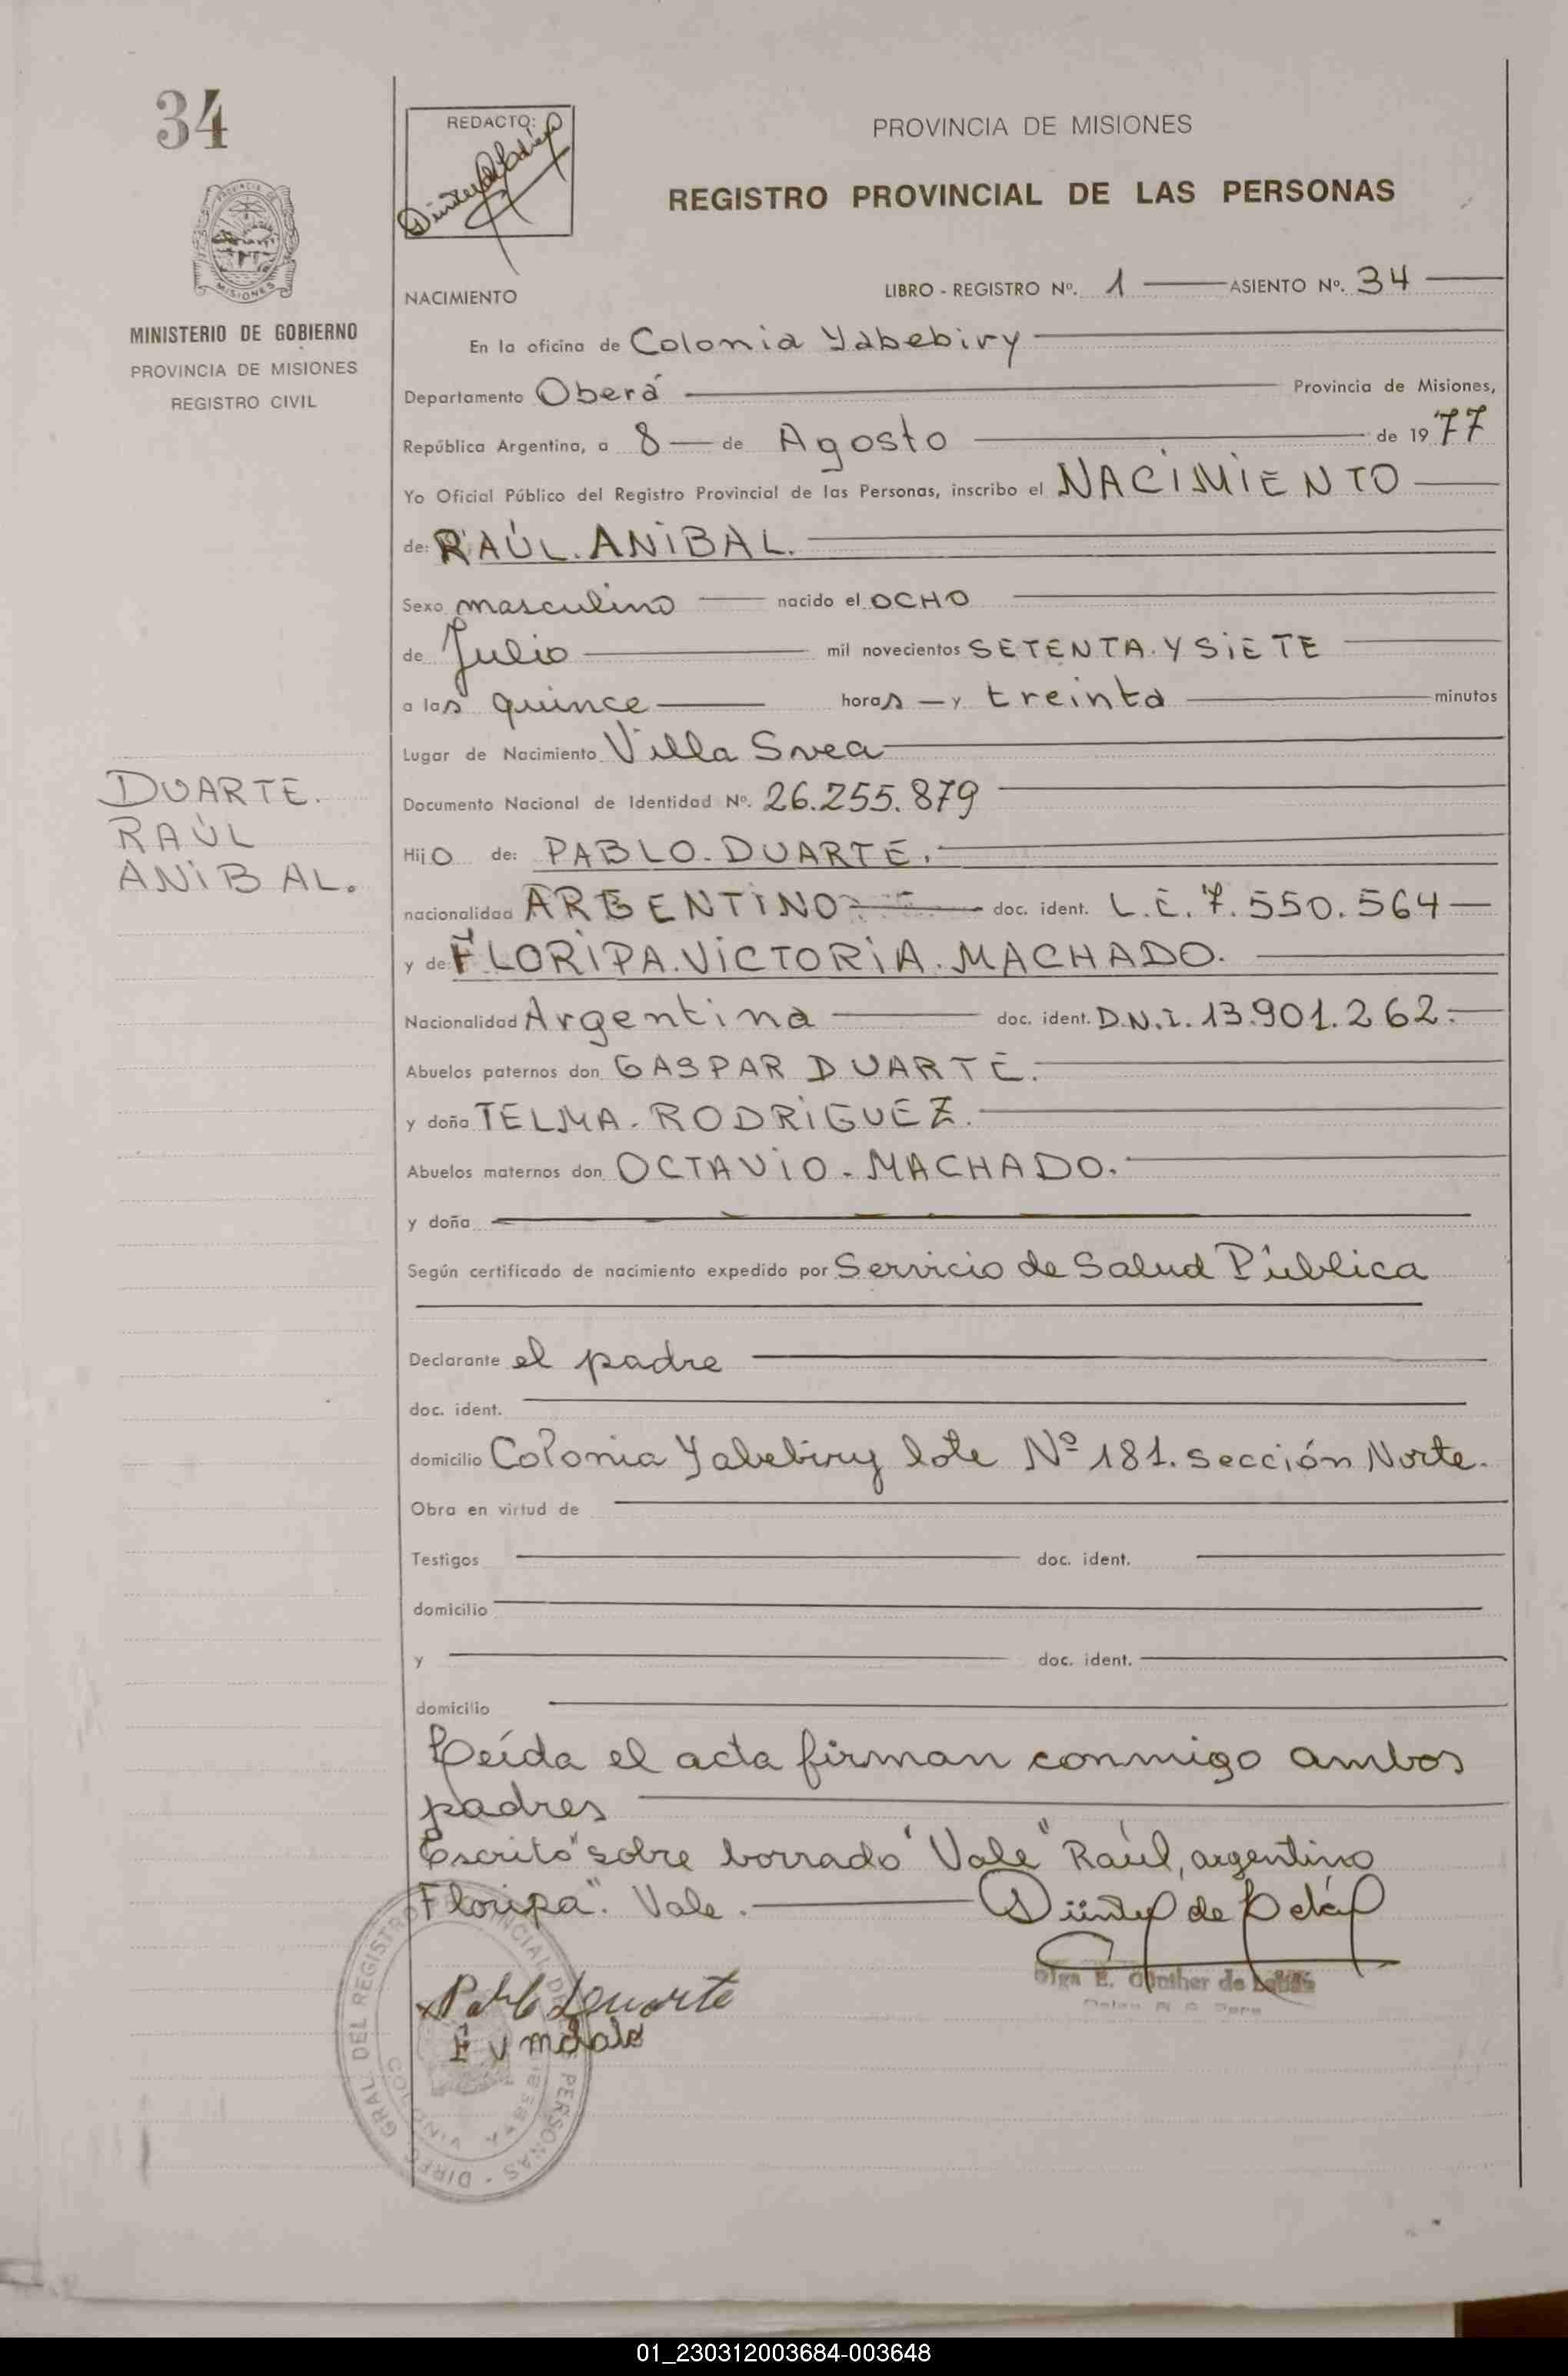 34
PROVINCIA DE MISIONES
MINISTERIO DE GOBIERNO
PROVINCIA DE MISIONES
REGISTRO CIVIL
DUARTE.
RAÚL
ANIBAL.
REDACTO:
PROVINCIA DE MISIONES
REGISTRO PROVINCIAL DE LAS PERSONAS
NACIMIENTO LIBRO - REGISTRO Nº. 1 ASIENTO Nº. 34
En la oficina de Colonia Yabebiry
Departamento Oberá Provincia de Misiones,
República Argentina, a 8 de Agosto de 1977
Yo Oficial Público del Registro Provincial de las Personas, inscribo el NACIMIENTO
de: RAÚL. ANIBAL.
Sexo masculino nacido el OCHO
de Julio mil novecientos SETENTA Y SIETE
a las quince horas y treinta minutos
Lugar de Nacimiento Villa Svea
Documento Nacional de Identidad Nº. 26.255.879
Hijo de: PABLO. DUARTE.
nacionalidad ARGENTINO doc. ident. L.E. 7.550.564
y de FLORIPA. VICTORIA. MACHADO.
Nacionalidad Argentina doc. ident. D.N.I. 13.901.262.
Abuelos paternos don GASPAR DUARTE.
y doña TELMA. RODRIGUEZ.
Abuelos maternos don OCTAVIO. MACHADO.
y doña
Según certificado de nacimiento expedido por Servicio de Salud Pública
Declarante el padre
doc. ident.
domicilio Colonia Yabebiry lote Nº 181. sección Norte.
Obra en virtud de
Testigos doc. ident.
domicilio
y doc. ident.
domicilio
Leída el acta firman conmigo ambos
padres
Escrito "sobre borrado "Vale" Raúl, argentino
Floripa". Vale.
Olga E. Günther de
Pablo Duarte
F V
DIREC. GRAL. DEL REGISTRO PROVINCIAL DE PERSONAS
01_230312003684-003648